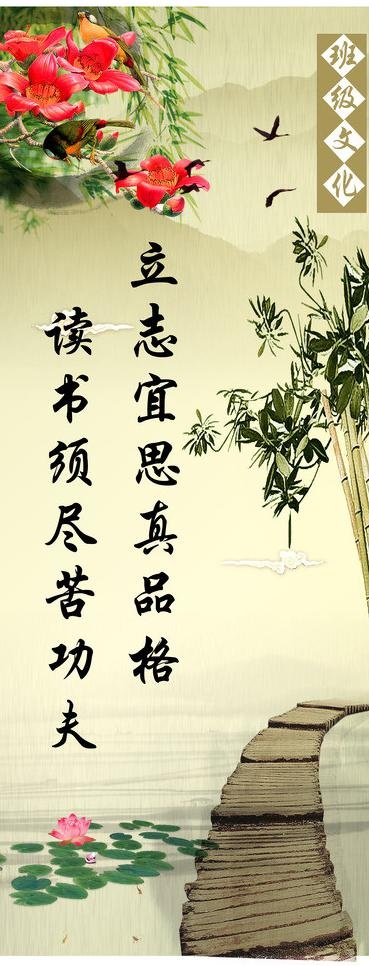 班级文化
立志宜思真品格
读书须尽苦功夫